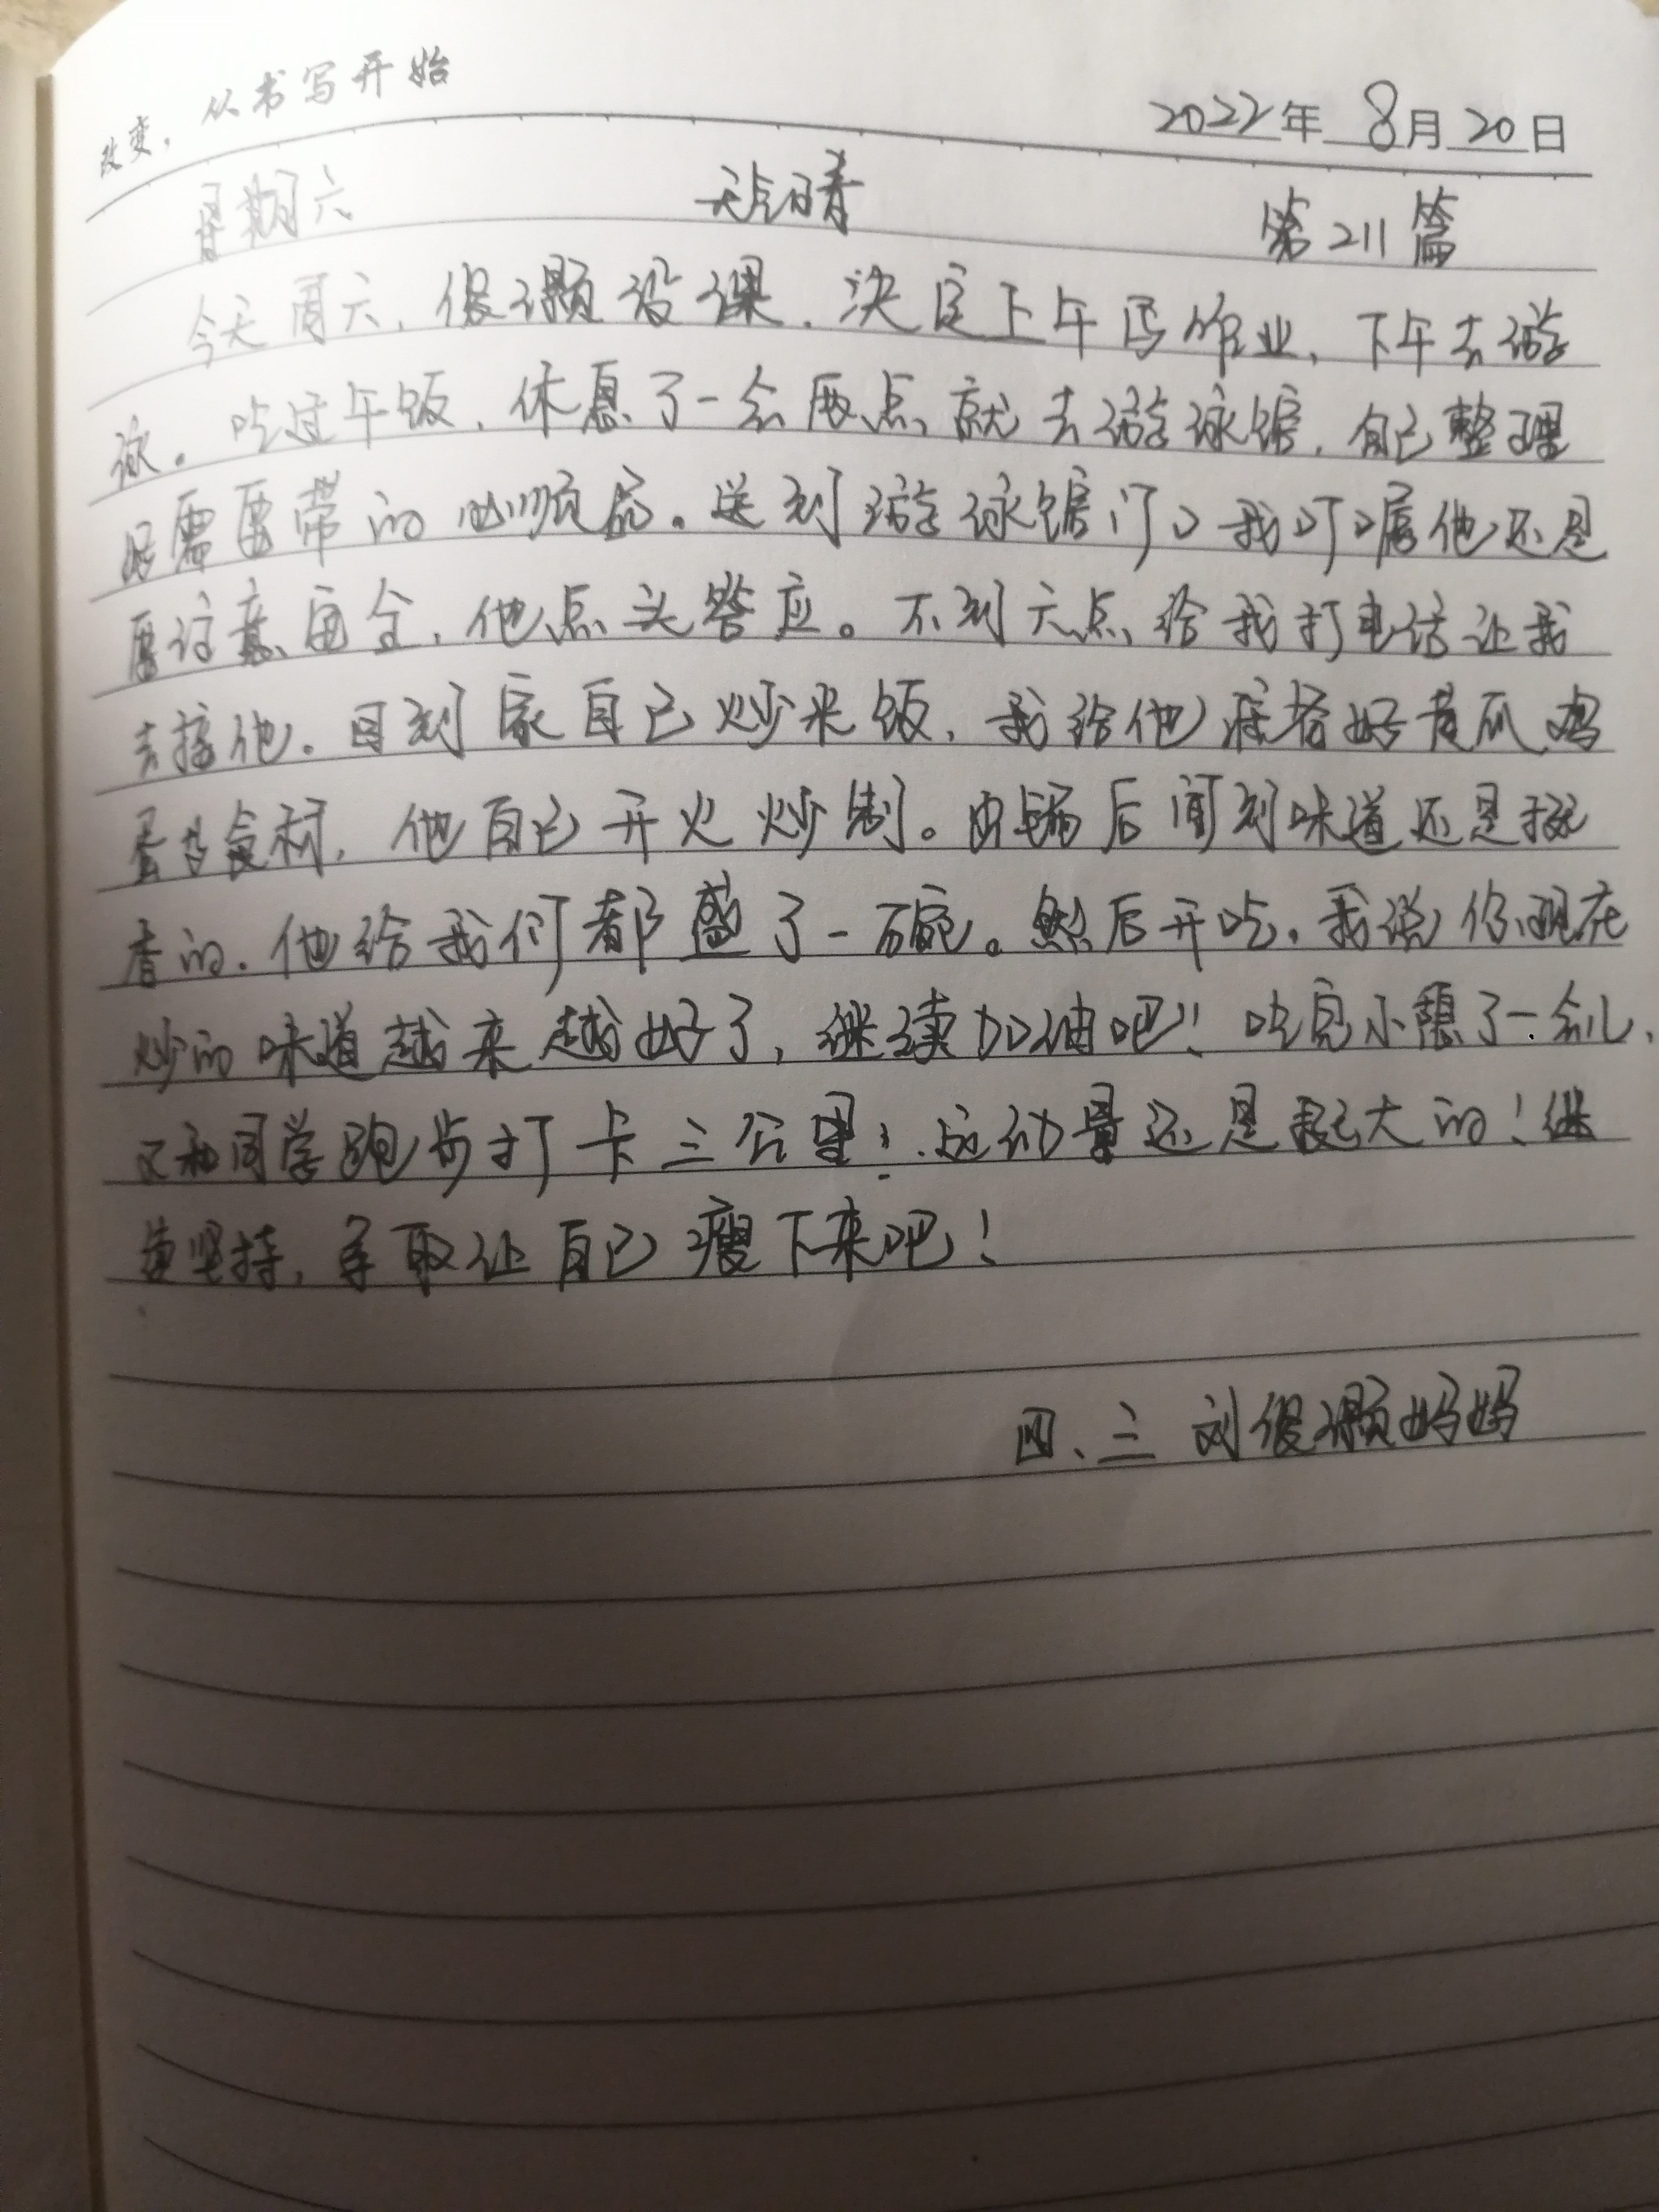 改变，从书写开始
2022年 8月20日
星期六 天气晴 第211篇
今天周六，俊灏没课，决定上午写作业，下午去游
泳。吃过午饭，休息了一会两点就去游泳馆，自己整理
好需要带的必须品。送到游泳馆门口我叮嘱他还是
要注意安全，他点头答应。不到六点给我打电话让我
去接他。回到家自己炒米饭，我给他准备好黄瓜鸡
蛋等食材，他自己开火炒制。出锅后闻到味道还是挺
香的。他给我们都盛了一碗。然后开吃，我说你现在
炒的味道越来越好了，继续加油吧！吃完小憩了一会儿，
又和同学跑步打卡三公里！运动量还是挺大的！继
续坚持，争取让自己瘦下来吧！
四、三 刘俊灏妈妈